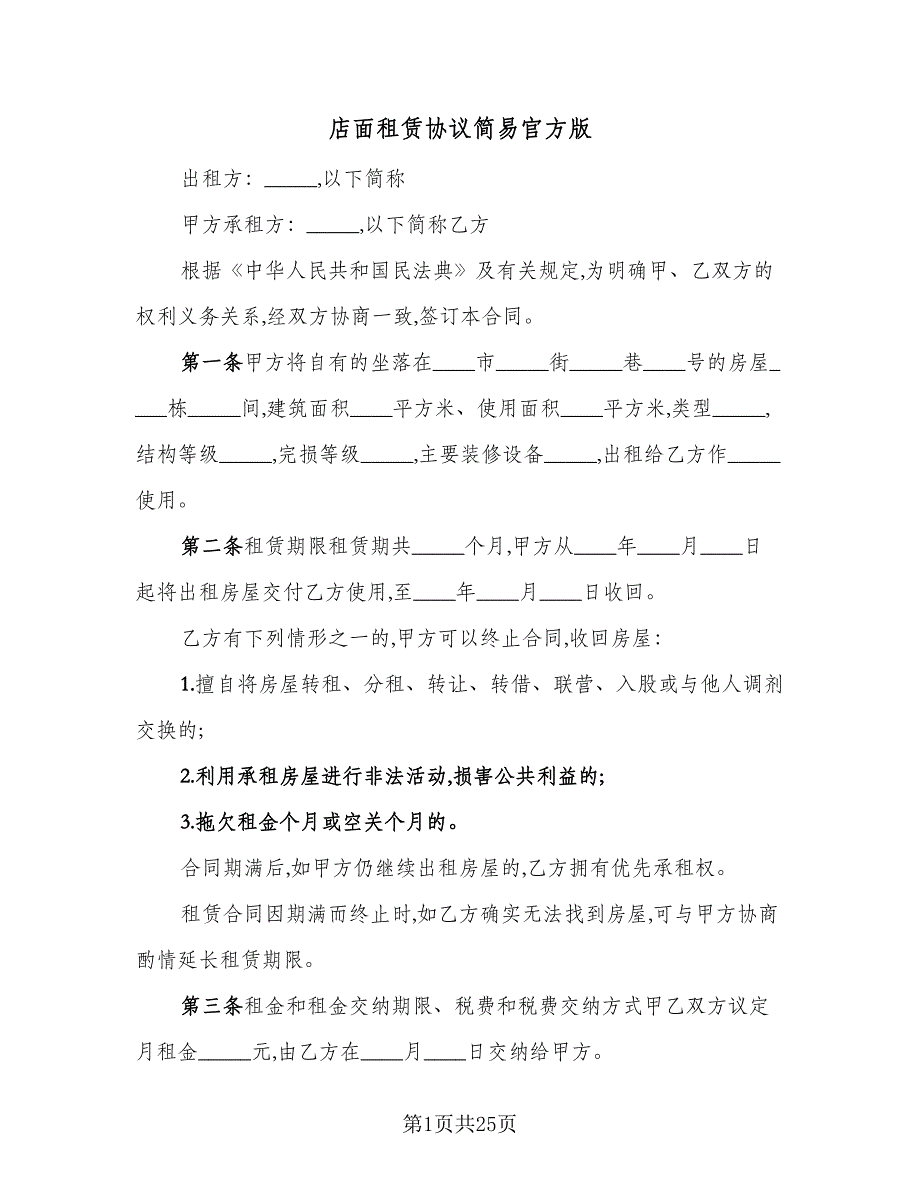 店面租赁协议简易官方版
出租方：_____,以下简称
甲方承租方：_____,以下简称乙方
根据《中华人民共和国民法典》及有关规定,为明确甲、乙双方的
权利义务关系,经双方协商一致,签订本合同。
第一条甲方将自有的坐落在____市_____街_____巷____号的房屋_
___栋_____间,建筑面积____平方米、使用面积____平方米,类型_____,
结构等级_____,完损等级_____,主要装修设备_____,出租给乙方作_____
使用。
第二条租赁期限租赁期共_____个月,甲方从____年____月____日
起将出租房屋交付乙方使用,至____年____月____日收回。
乙方有下列情形之一的,甲方可以终止合同,收回房屋：
1.擅自将房屋转租、分租、转让、转借、联营、入股或与他人调剂
交换的;
2.利用承租房屋进行非法活动,损害公共利益的;
3.拖欠租金个月或空关个月的。
合同期满后,如甲方仍继续出租房屋的,乙方拥有优先承租权。
租赁合同因期满而终止时,如乙方确实无法找到房屋,可与甲方协商
酌情延长租赁期限。
第三条租金和租金交纳期限、税费和税费交纳方式甲乙双方议定
月租金_____元,由乙方在____月____日交纳给甲方。
第1页共25页